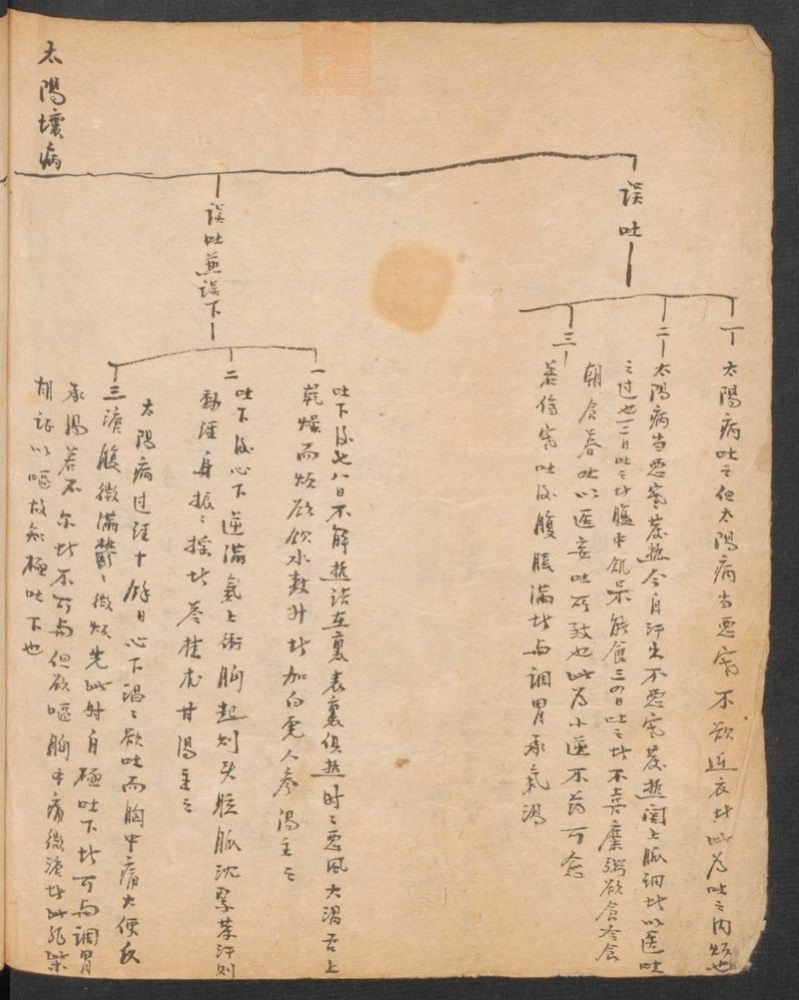 太陽壞病
誤吐
一 太陽病吐之但太陽病当惡寒不欲近衣者此为吐之内烦也
二 太陽病当惡寒發热今自汗出不惡寒發热関上脈细者以医吐
之过也一二日吐之者腹中飢不能食三四日吐之者不喜糜粥欲食冷食
朝食暮吐以医妄吐所致也此为小逆不药可愈
三
若傷寒吐後腹脹满者与调胃承氣湯
誤吐兼誤下
吐下後七八日不解热结在裏表裏俱热时〻惡風大渴舌上
一 乾燥而烦欲飲水数升者加白虎人参湯主之
二 吐下後心下逆满氣上衝胸起则头眩脈沈紧葉汗则
動经身振〻摇者苓桂朮甘湯主之
太陽病过经十馀日心下温〻欲吐而胸中痛大便反
三 溏腹微满鬱〻微烦先此时自極吐下者可与调胃
承湯若不尔者不可与但欲嘔胸中痛微溏者此非柴
胡证以嘔故知極吐下也